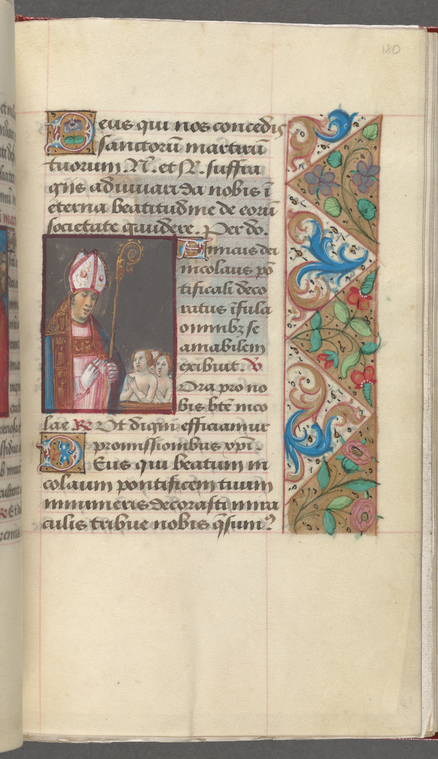 180
Deus qui nos concedis
sanctorū martirū
tuorum N. et N. suffra
giis adiuuari da nobis ī
eterna beatitudine de eorū
societate gaudere. Per dō.
Amicus dei
nicolaus po
tificali deco
ratus īfula
omnibz se
amabilem
exibuit. V
Ora pro no
bis bt̄e nico
lae R Ut digni efficiamur
promissionibus xp̄i.
Deus qui beatum ni
colaum pontificem tuum
innumeris decorasti mira
culis tribue nobis q̄sum9